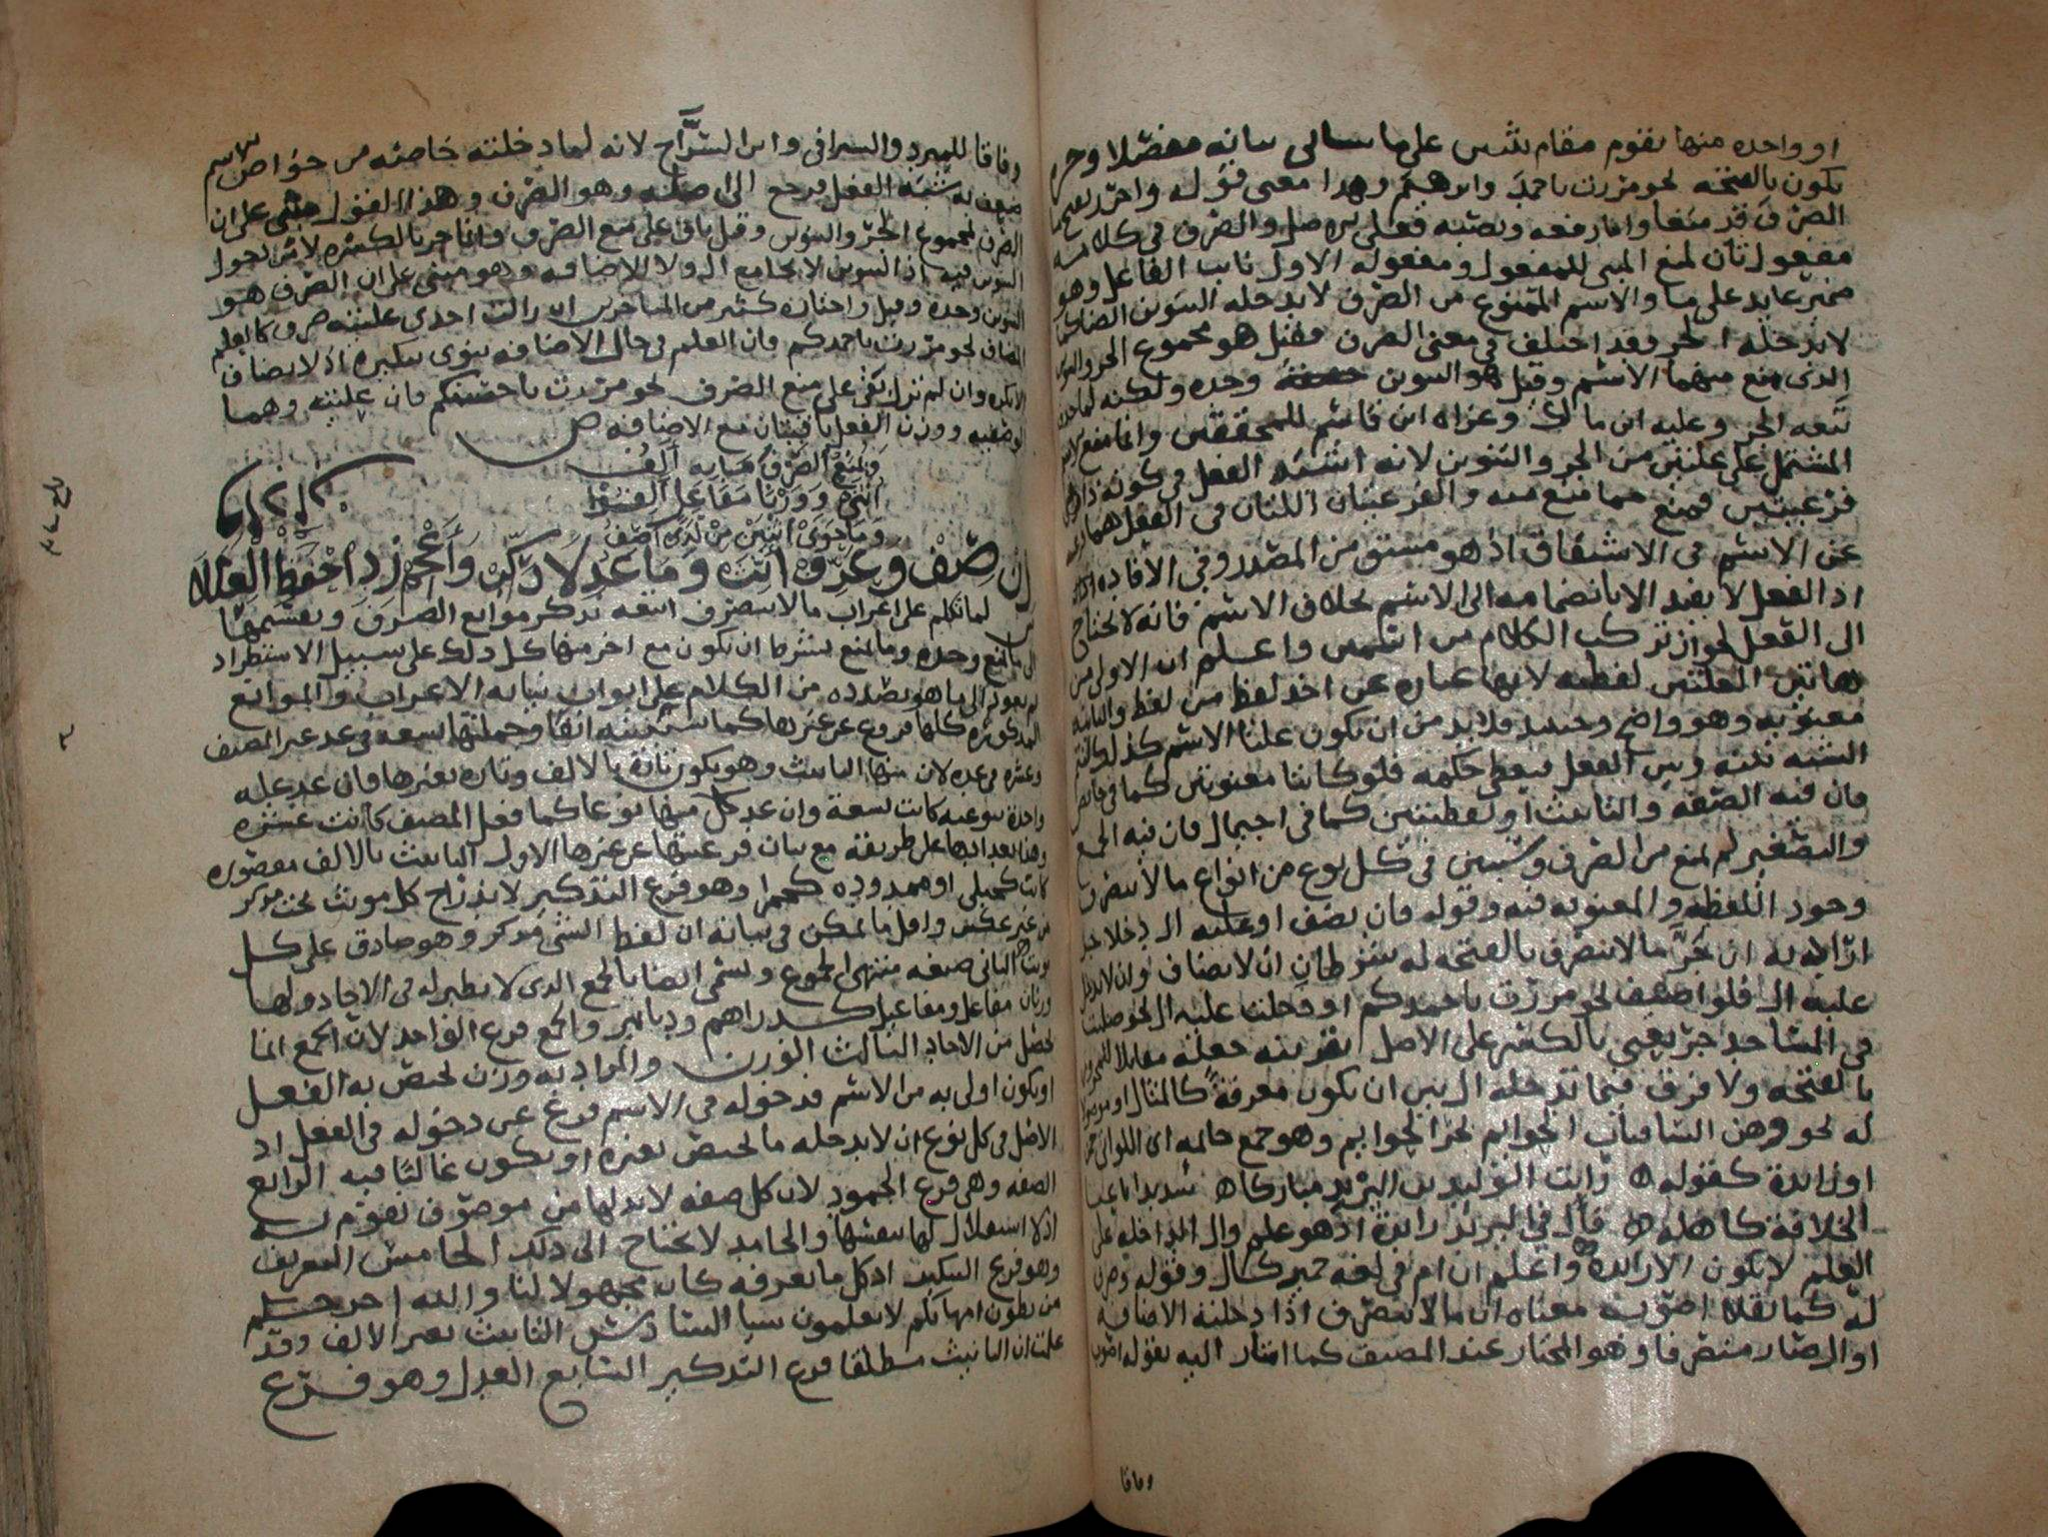 او واحده منها تقوم مقام ثنتين على ما سيأتى بيانه مفصلا وجره
يكون بالفتحه نحو مررت باحمد وابرهيم وهذا معنى قوله واجرر بفتحه
الصرف قد منعا واما رفعه ونصبه فعلى الاصل والصرف فى كلامه
مفعول ثان لمنع المبنى للمفعول ومفعوله الاول نايب الفاعل وهو
ضمير عايد على ما والاسم الممنوع من الصرف لا يدخله التنوين كما
لا يدخله الجر وقد اختلف فى معنى الصرف فقيل هو مجموع الجر والتنوين
الذى منع منهما الاسم وقيل هو التنوين وحده ولكنه لما حذف
تبعه الجر وعليه ابن مالك وعزاه ابن قاسم للمحققين وانما منع الاسم
المشتمل على علتين من الجر والتنوين لانه اشبه الفعل فى كونه ذا
فرعيتين فمنع مما منع منه والفرعيتان اللتان فى الفعل هما فرعيته
عن الاسم فى الاشتقاق اذ هو مشتق من المصدر وفى الافاده
اذ الفعل لا يفيد الا بانضمامه الى الاسم بخلاف الاسم فانه لا يحتاج
الى الفعل لجواز تركب الكلام من اسمين واعلم ان الاولى من
هاتين العلتين لفظيه لانها عباره عن اخذ لفظ من لفظ والثانيه
معنويه وهو واضح وحينئذ فلابد من ان يكون علتا الاسم كذلك ليتم
الشبه بينه وبين الفعل فيعطى حكمه فلو كانتا معنويتين كما فى حايض
فان فيه الصفه والتانيث او لفظيتين كما فى اجيمال فان فيه الجمع
والتصغير لم يمنع من الصرف وسيبين فى كل نوع من انواع ما لا ينصرف
وجود اللفظيه والمعنويه فيه وقوله فان يضف او عليه ال دخلا جر
اراد به ان جر ما لا ينصرف بالفتحه له شرطان ان لا يضاف وان لا يدخل
عليه ال فلو اضيف نحو مررت باحمدكم او دخلت عليه ال نحو صليت
فى المساجد جر يعنى بالكسر على الاصل بقرينه جعله مقابلا للمجرور
بالفتحه ولا فرق فيما تدخله ال بين ان يكون معرفة كالمثال او موصولة
له نحو وهن الشافيات الحوايم نحز الحوايم وهو جمع حايمه اى اللواتى
او زايدة كقوله رايت الوليد بن اليزيد مباركا شديدا باعبا
الخلافة كاهله فال فى اليزيد زايدة اذ هو علم وال الداخله على
العلم لا تكون الا زايدة واعلم ان ام فى لغه حمير كال وقوله وصرف
له كما نقلا اصوب معناه ان ما لا ينصرف اذا دخلته الاضافه
او ال صار منصرفا وهو المختار عند المصنف كما اشار اليه بقوله اصوب
وفاقا
وفاقا للمبرد والسيرافى وابن السراج لانه لما دخلته خاصته من خواص الاسم
ضعف به شبه الفعل فرجع الى اصله وهو الصرف وهذا القول مبنى على ان
الصرف مجموع الجر والتنوين وقيل باق على منع الصرف وانما جر بالكسره لامن دخول
التنوين فيه اذ التنوين لا يجامع ال ولا الاضافه وهو مبنى على ان الصرف هو
التنوين وحده وقيل واختاره كثير من المتاخرين ان زالت احدى علتيه صرف كالعلم
المضاف نحو مررت باحمدكم فان العلم فى حال الاضافه ينوى تنكيره اذ لا يضاف
الا نكره وان لم تزل بقى على منع الصرف نحو مررت باحسنكم فان علتيه وهما
الوصفيه ووزن الفعل باقيتان مع الاضافه ص
وَيَمْنَعُ الصَّرْفَ مَنَابَه اَلِفُ
اُنْثَى وَوَزْنَا مَفَاعِلَ اعْرِفُوْا
وَمَا حَوَى اثْنَيْنِ مِنْ لَدَى اَصِفُ
زِنْ صِفْ وَعَرِّفْ اَنِّثْ وَمَا عَدْلا رَكِّبْ وَاَعْجِمْ زِدْ اِحْفَظِ العِلَلَه
لما تكلم على اعراب ما لا ينصرف اتبعه بذكر موانع الصرف وتقسيمها
الى ما يمنع وحده وما يمنع بشرط ان يكون مع اخر منها كل ذلك على سبيل الاستطراد
ثم يعود الى ما هو بصدده من الكلام على ابواب نيابه الاعراب والموانع
المذكوره كلها فروع عن غيرها كما ستبينه انفا وجملتها تسعه فى عد غير المصنف
وعشره فى عده لان منها التانيث وهو يكون تارة بالالف وتاره بغيرها فان عد علة
واحدة بنوعيه كانت تسعة وان عد كل منها نوعا كما فعل المصنف كانت عشره
وهنا نعدها على طريقته مع بيان فرعيتها عن غيرها الاول التانيث بالالف مقصوره
كانت كحبلى او ممدوده كحمرا وهو فرع التذكير لاندراج كل مونث تحت مذكر
من غير عكس واقل ما يمكن فى بيانه ان لفظ الشى مذكر وهو صادق على كل
مونث الثانى صيغه منتهى الجموع وتسمى ايضا بالجمع الذى لا نظير له فى الاحاد ولها
وزنان مفاعل ومفاعيل كدراهم ودنانير والجمع فرع الواحد لان الجمع انما
يحصل من الاحاد الثالث الوزن والمراد به وزن يختص به الفعل
او يكون اولى به من الاسم فدخوله فى الاسم فرع عن دخوله فى الفعل اذ
الاصل فى كل نوع ان لا يدخله ما يختص بغيره او يكون غالبا فيه الرابع
الصفه وهى فرع الجمود لان كل صفه لابد لها من موصوف تقوم به
اذ لا استقلال لها بنفسها والجامد لا يحتاج الى ذلك الخامس التعريف
وهو فرع التنكير اذ كل ما نعرفه كان مجهولا لنا والله اخرجكم
من بطون امهاتكم لا تعلمون شيا السادس التانيث بغير الالف وقد
علمت ان التانيث مطلقا فرع التذكير السابع العدل وهو فرع